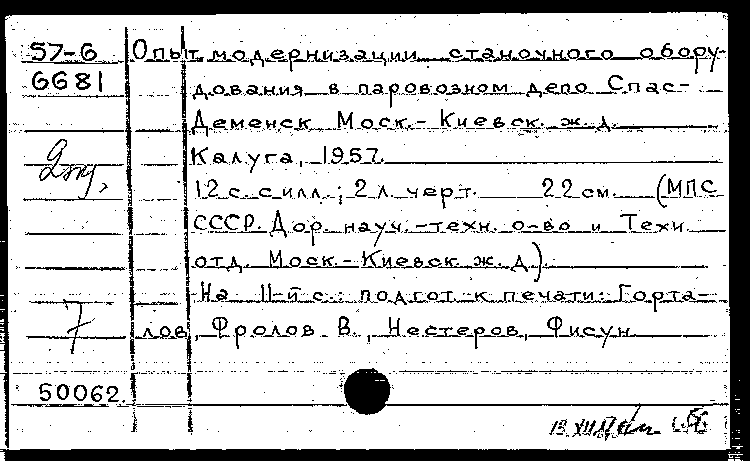 57-6 Опыт модернизации станочного обору-
6681 дования в паровозном депо Спас-
Деменск Моск.-Киевск. ж. д.
Калуга, 1957.
12 с. с илл.; 2 л. черт. 22 см. (МПС
СССР. Дор. науч.-техн. о-во и Техн.
отд. Моск.-Киевск. ж. д.).
На 11-й с.: подгот. к печати: Горта-
7 лов, Фролов В., Нестеров, Фисун.
50062.